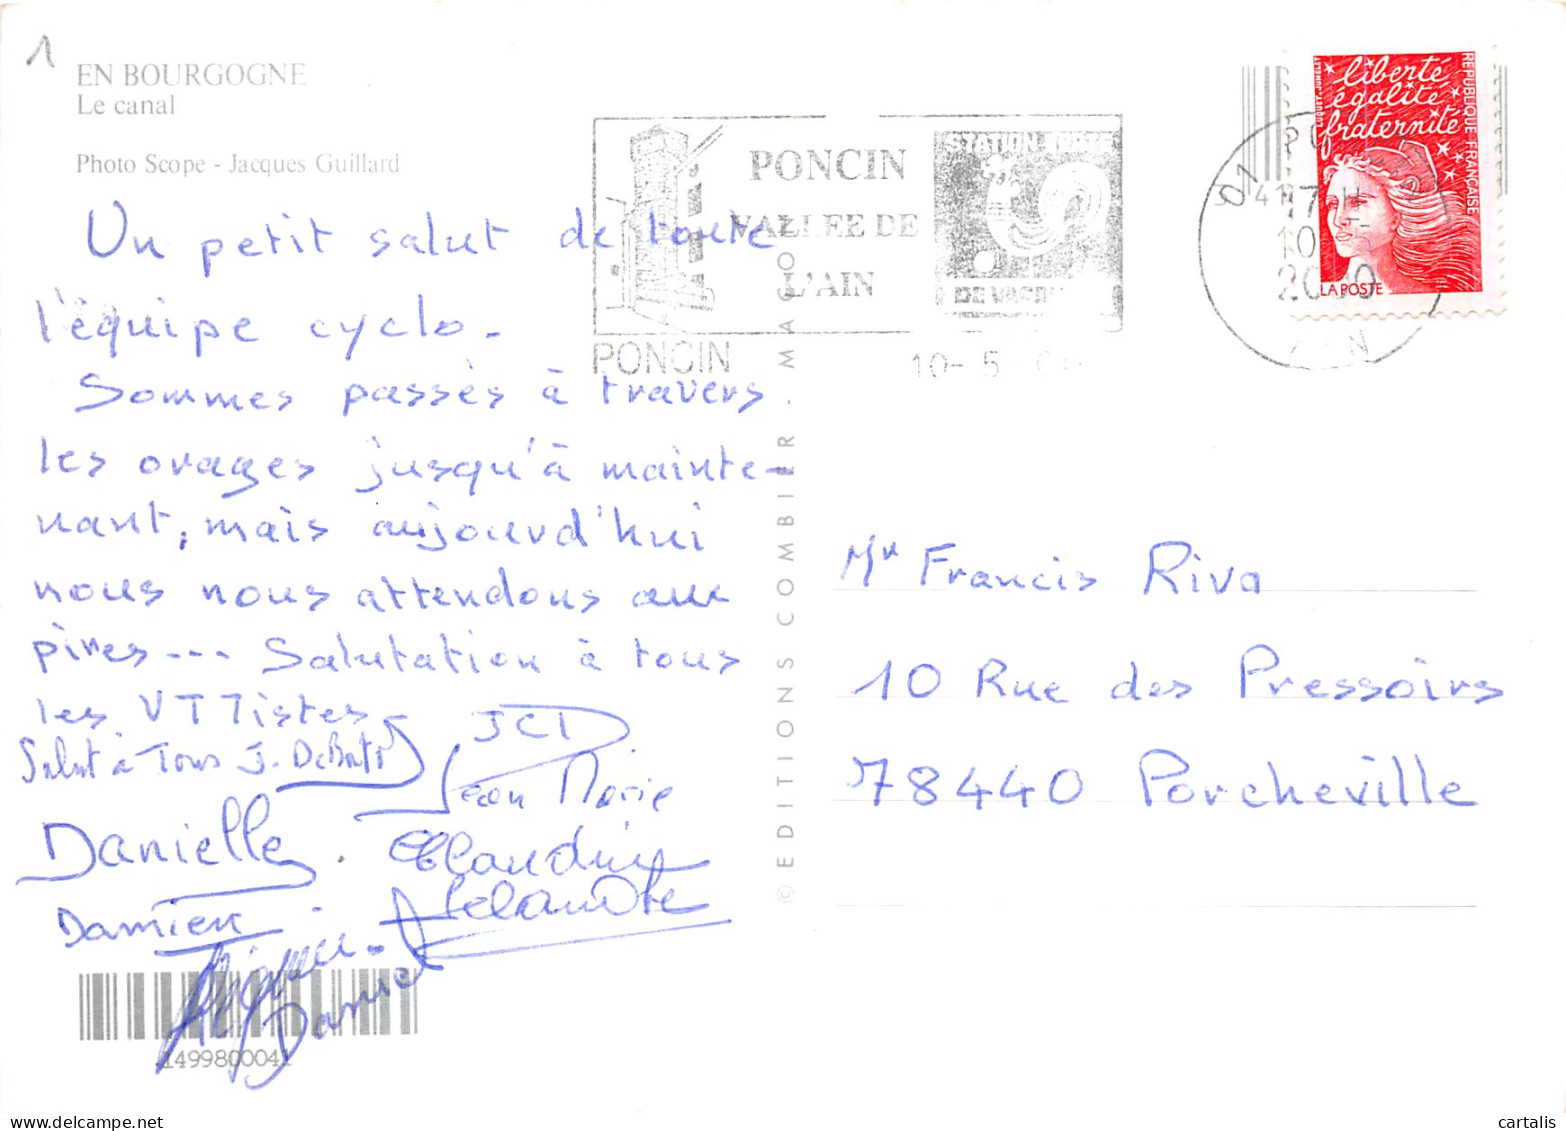 1
EN BOURGOGNE
Le canal
Photo Scope - Jacques Guillard
Un petit salut de toute
l'équipe cyclo.
Sommes passés à travers
les orages jusqu'à mainte-
nant, mais aujourd'hui
nous nous attendons aux
pires... Salutation à tous
les VTTistes
Salut à Tous J.
JCD
Jean Marie
Danielle.
Claudine
Damien
Daniel
1499800041
©EDITIONS COMBIER - MACON
PONCIN
VALLEE DE
L'AIN
STATION VERTE
DE VACANCES
PONCIN
10- 5
01
17H
10
2000
AIN
liberté
égalité
fraternité
REPUBLIQUE FRANÇAISE
LA POSTE
Mr Francis Riva
10 Rue des Pressoirs
78440 Porcheville
cartalis
www.delcampe.net